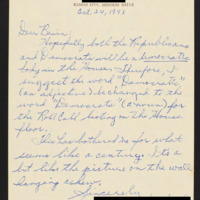 KANSAS CITY, MISSOURI 64112
Oct. 24, 1978
Dear Brian:
Hopefully both the Republicans
and Democrats will be a democratic
body in the House – therefore, I
suggest the word "Democratic"
(as adjective) be changed to the
word "Democrats" (a noun) for
the Roll Call listing on the House
floor.
This has bothered us for what
seems like a century. It's a
bit like the picture on the wall
hanging askew.
Sincerely